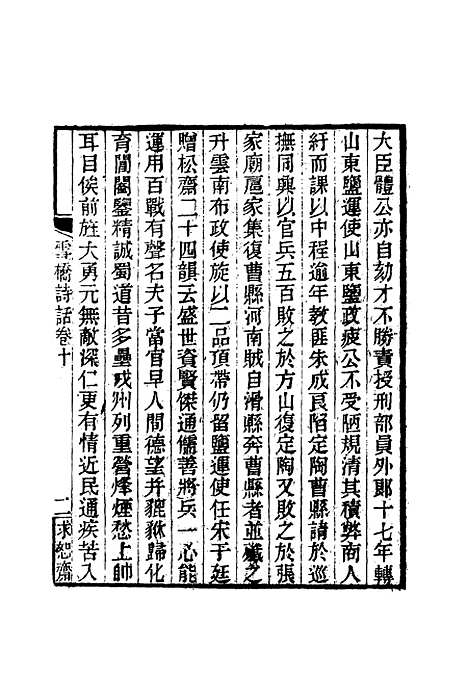 大臣體公亦自劾才不勝責授刑部員外郎十七年轉
山東鹽運使山東鹽政疲公不受陋規清其積弊商人
紓而課以中程逾年教匪朱成良陷定陶曹縣請於巡
撫同興以官兵五百敗之於方山復定陶又敗之於張
家廟扈家集復曹縣河南賊自滑縣奔曹縣者並殲之
升雲南布政使旋以二品頂帶仍留鹽運使任宋于廷
贈松齋二十四韻云盛世資賢傑通儒善將兵一心能
運用百戰有聲名夫子當官早人間德望并貔貅歸化
育閭闔鑒精誠蜀道昔多壘戎州列重營烽煙愁上帥
耳目俟前旌大勇元無敵深仁更有情近民通疾苦入
雪橋詩話卷十
二
求恕齋